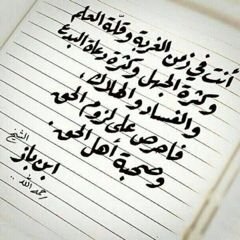 أنت في زمن الغربة وقلّة العلم
وكثرة الجهل وكثرة دعاة البدع
والفساد والهلاك،
فاحرص على لزوم الحق
وصحبة أهل الحق.
الشيخ
ابن باز
رحمه الله..